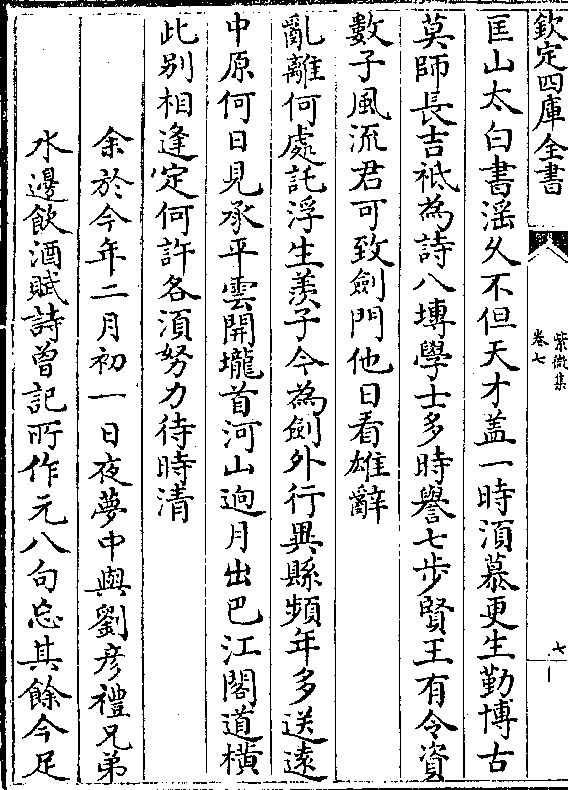 欽定四庫全書
紫微集
卷七
七
匡山太白書淫久不但天才盖一時湏慕更生勤博古
莫師長吉祗為詩八塼學士多時譽七步賢王有令資
數子風流君可致劍門他日看雄辭
亂離何處託浮生羨子今為劍外行異縣頻年多送逺
中原何日見承平雲開壠首河山逈月出巴江閣道横
此别相逢定何許各湏努力待時清
余於今年二月初一日夜夢中與劉彦禮兄弟
水邊飲酒賦詩曽記所作元八句忘其餘今足